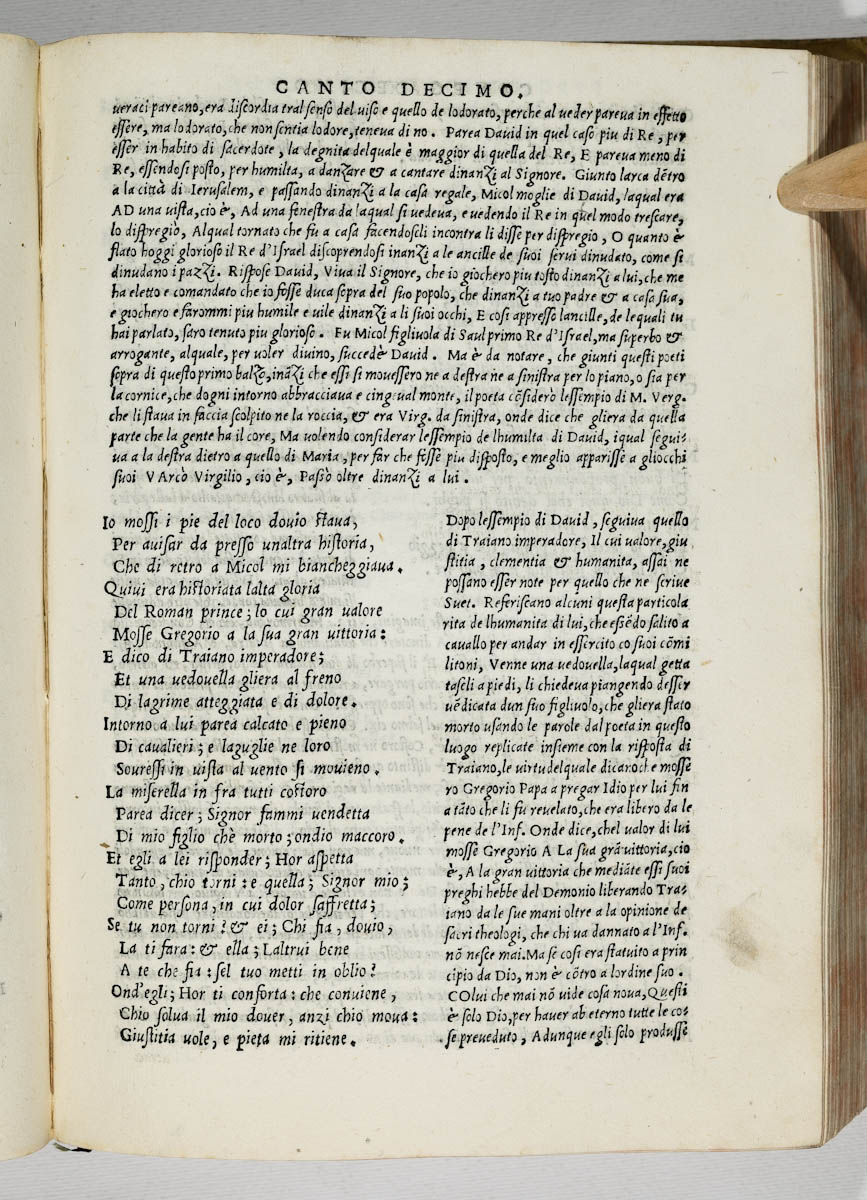 CANTO DECIMO.
ueraci pareano, era discordia tral senso del uiso e quello de lodorato, perche al ueder pareua in effetto
essere, ma lodorato, che non sentia lodore, teneua di no. Parea Dauid in quel caso piu di Re, per
esser in habito di sacerdote, la degnita delquale è maggior di quella del Re, E pareua meno di
Re, essendosi posto, per humilta, a danzare & a cantare dinanzi al Signore. Giunto larca dẽtro
a la città di Ierusalem, e passando dinanzi a la casa regale, Micol moglie di Dauid, laqual era
AD una uista, cio è, Ad una fenestra da laqual si uedeua, e uedendo il Re in quel modo trescare,
lo dispregiò, Alqual tornato che fu a casa facendoseli incontra li disse per dispregio, O quanto è
stato hoggi glorioso il Re d'Israel discoprendosi inanzi a le ancille de suoi serui dinudato, come si
dinudano i pazzi. Rispose Dauid, Viua il Signore, che io giochero piu tosto dinanzi a lui, che me
ha eletto e comandato che io fosse duca sopra del suo popolo, che dinanzi a tuo padre & a casa sua,
e giochero e farommi piu humile e uile dinanzi a li suoi occhi, E cosi appresso lancille, de lequali tu
hai parlato, saro tenuto piu glorioso. Fu Micol figliuola di Saul primo Re d'Israel, ma superbo &
arrogante, alquale, per uoler diuino, succedè Dauid. Ma è da notare, che giunti questi poeti
sopra di questo primo balzo, inãzi che essi si mouessero ne a destra ne a sinistra per lo piano, o sia per
la cornice, che dogni intorno abbracciaua e cingeual monte, il poeta cõsiderò lessempio di M. Verg.
che li staua in faccia scolpito ne la roccia, & era Virg. da sinistra, onde dice che gliera da quella
parte che la gente ha il core, Ma uolendo considerar lessempio de lhumilta di Dauid, iqual segui-
ua a la destra dietro a quello di Maria, per far che fosse piu disposto, e meglio apparisse a gliocchi
suoi VArcò Virgilio, cio è, Passò oltre dinanzi a lui.
Io mossi i pie del loco douio staua,
Per auisar da presso unaltra historia,
Che di retro a Micol mi biancheggiaua.
Quiui era historiata lalta gloria
Del Roman prince; lo cui gran ualore
Mosse Gregorio a la sua gran uittoria:
E dico di Traiano imperadore;
Et una uedouella gliera al freno
Di lagrime atteggiata e di dolore.
Intorno a lui parea calcato e pieno
Di caualieri; e laguglie ne loro
Souressi in uista al uento si mouieno.
La miserella in fra tutti costoro
Parea dicer; Signor fammi uendetta
Di mio figlio chè morto; ondio maccoro.
Et egli a lei risponder; Hor aspetta
Tanto, chio torni: e quella; Signor mio;
Come persona, in cui dolor saffretta;
Se tu non torni? & ei; Chi fia, douio,
La ti fara: & ella; Laltrui bene
A te che fia: sel tuo metti in oblio?
Ond'egli; Hor ti conforta: che conuiene,
Chio solua il mio douer, anzi chio moua:
Giustitia uole, e pieta mi ritiene.
Dopo lessempio di Dauid, seguiua quello
di Traiano imperadore, Il cui ualore, giu
stitia, clementia & humanita, assai ne
possano esser note per quello che ne scriue
Suet. Referiscano alcuni questa particola
rita de lhumanita di lui, che essẽdo salito a
cauallo per andar in essercito co suoi cõmi
litoni, Venne una uedouella, laqual getta
taseli a piedi, li chiedeua piangendo desser
uẽdicata dun suo figliuolo, che gliera stato
morto usando le parole dal poeta in questo
luogo replicate insieme con la risposta di
Traiano, le uirtu delquale dicano che mosse
ro Gregorio Papa a pregar Idio per lui fin
a tãto che li fu reuelato, che era libero da le
pene de l'Inf. Onde dice, chel ualor di lui
mosse Gregorio A La sua grã uittoria, cio
è, A la gran uittoria che mediãte essi suoi
preghi hebbe del Demonio liberando Tra-
iano da le sue mani oltre a la opinione de
sacri theologi, che chi ua dannato a l'Inf.
nõ nesce mai. Ma se cosi era statuito a prin
cipio da Dio, non è cõtro a lordine suo.
COlui che mai nõ uide cosa noua, Questi
è solo Dio, per hauer ab eterno tutte le co-
se preueduto, Adunque egli solo produsse